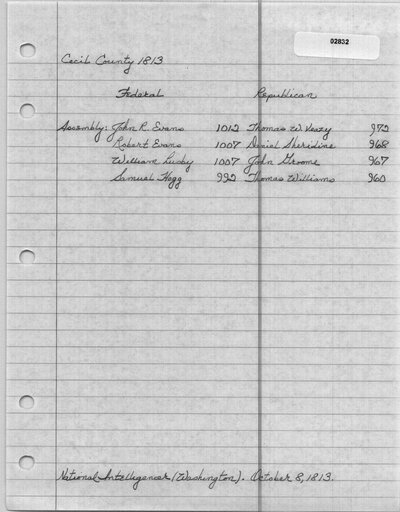 02832
Cecil County 1813
Federal Republican
Assembly: John R. Evans 1012 Thomas W. Veazy 972
Robert Evans 1007 Daniel Sheridine 968
William Lusby 1007 John Groome 967
Samuel Hogg 992 Thomas Williams 960
National Intelligencer (Washington). October 8, 1813.